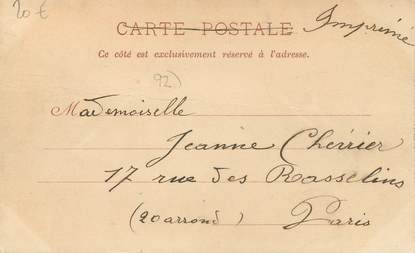 20 €
CARTE POSTALE
Imprimé
Ce côté est exclusivement réservé à l'adresse.
92)
Mademoiselle
Jeanne Cherrier
17 rue des Rasselins
(20 arrond) Paris